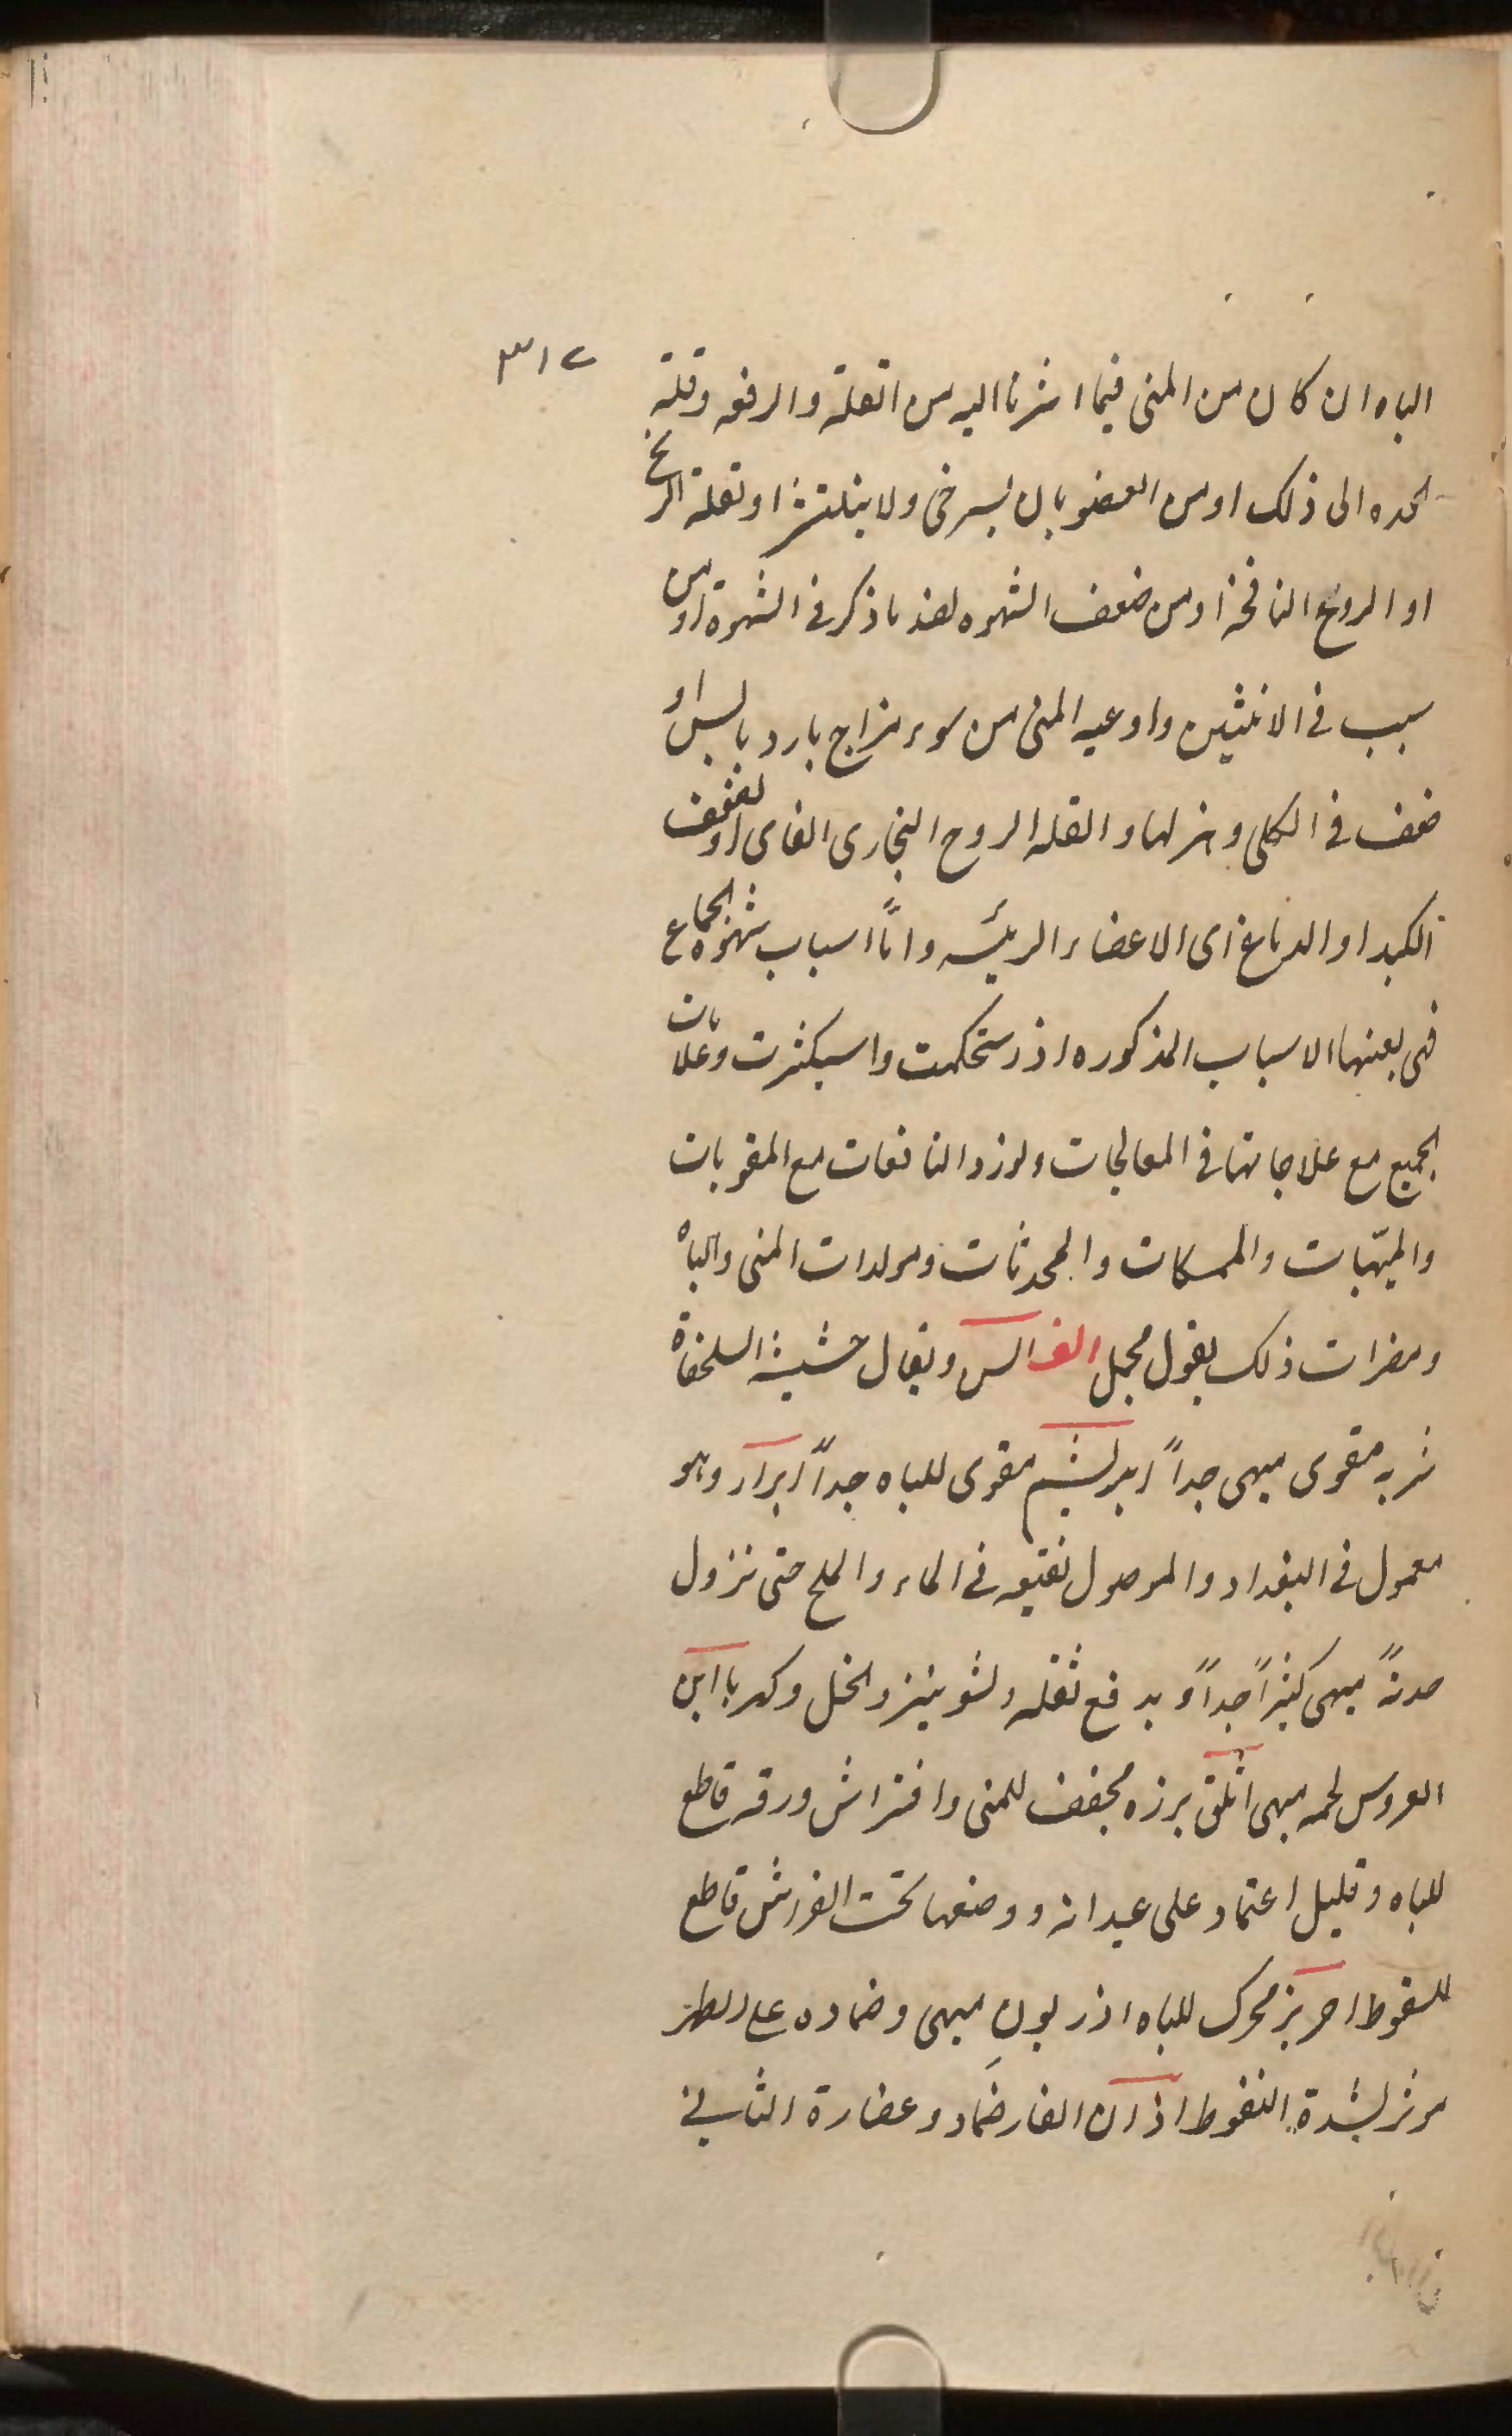 ٣١٢
الباه ان كان من المنى فيما اشرنا اليه من القلة والرقه وقلة
الحده الى ذلك او من العضو بان يسرخى ولا ينتشر او لقلة الريح
او الروح النافخة او من ضعف الشهوه لضد ما ذكر فى الشهوة او من
سبب فى الانثيين واوعيه المنى من سوء مزاج بارد يابس او
ضعف فى الكلى وهزلها و القله الروح البخارى الفاى او لضعف
الكبد او الدماغ اى الاعضاء الريئسه وامّا اسباب شهوه الجماع
فهى بعينها الاسباب المذكوره اذ استحكمت واسبكثرت وعلامات
الجميع مع علاجاتها فى المعالجات ولنزد النافعات مع المقويات
والميهّيات والممسكات والمحدثات ومولدات المنى والباه
ومضرات ذلك بقول مجمل الف السن ويقال حشيشة السلحفاة
شربه مقوى مبهى جداً ابريشم مقوى للباه جداً ابرار وهو
معمول فى البغداد والموصول نقيعه فى الماء والملح حتى نزول
حدتهً مبهى كثيراً جداً و يدفع ثقله الشونيز والخل وكهربا ابن
العروس لحمه مبهى اثلق برزه مجفف للمنى وافتراش ورقه قاطع
للباه وقليل اعتماد على عيدانه ووضعها تحت الفراش قاطع
للنغوط احريز محرك للباه اذريون مبهى وضماده على الظهر
مرثر لشدة النغوط اذان الفار ضماد وعضارة الثانى